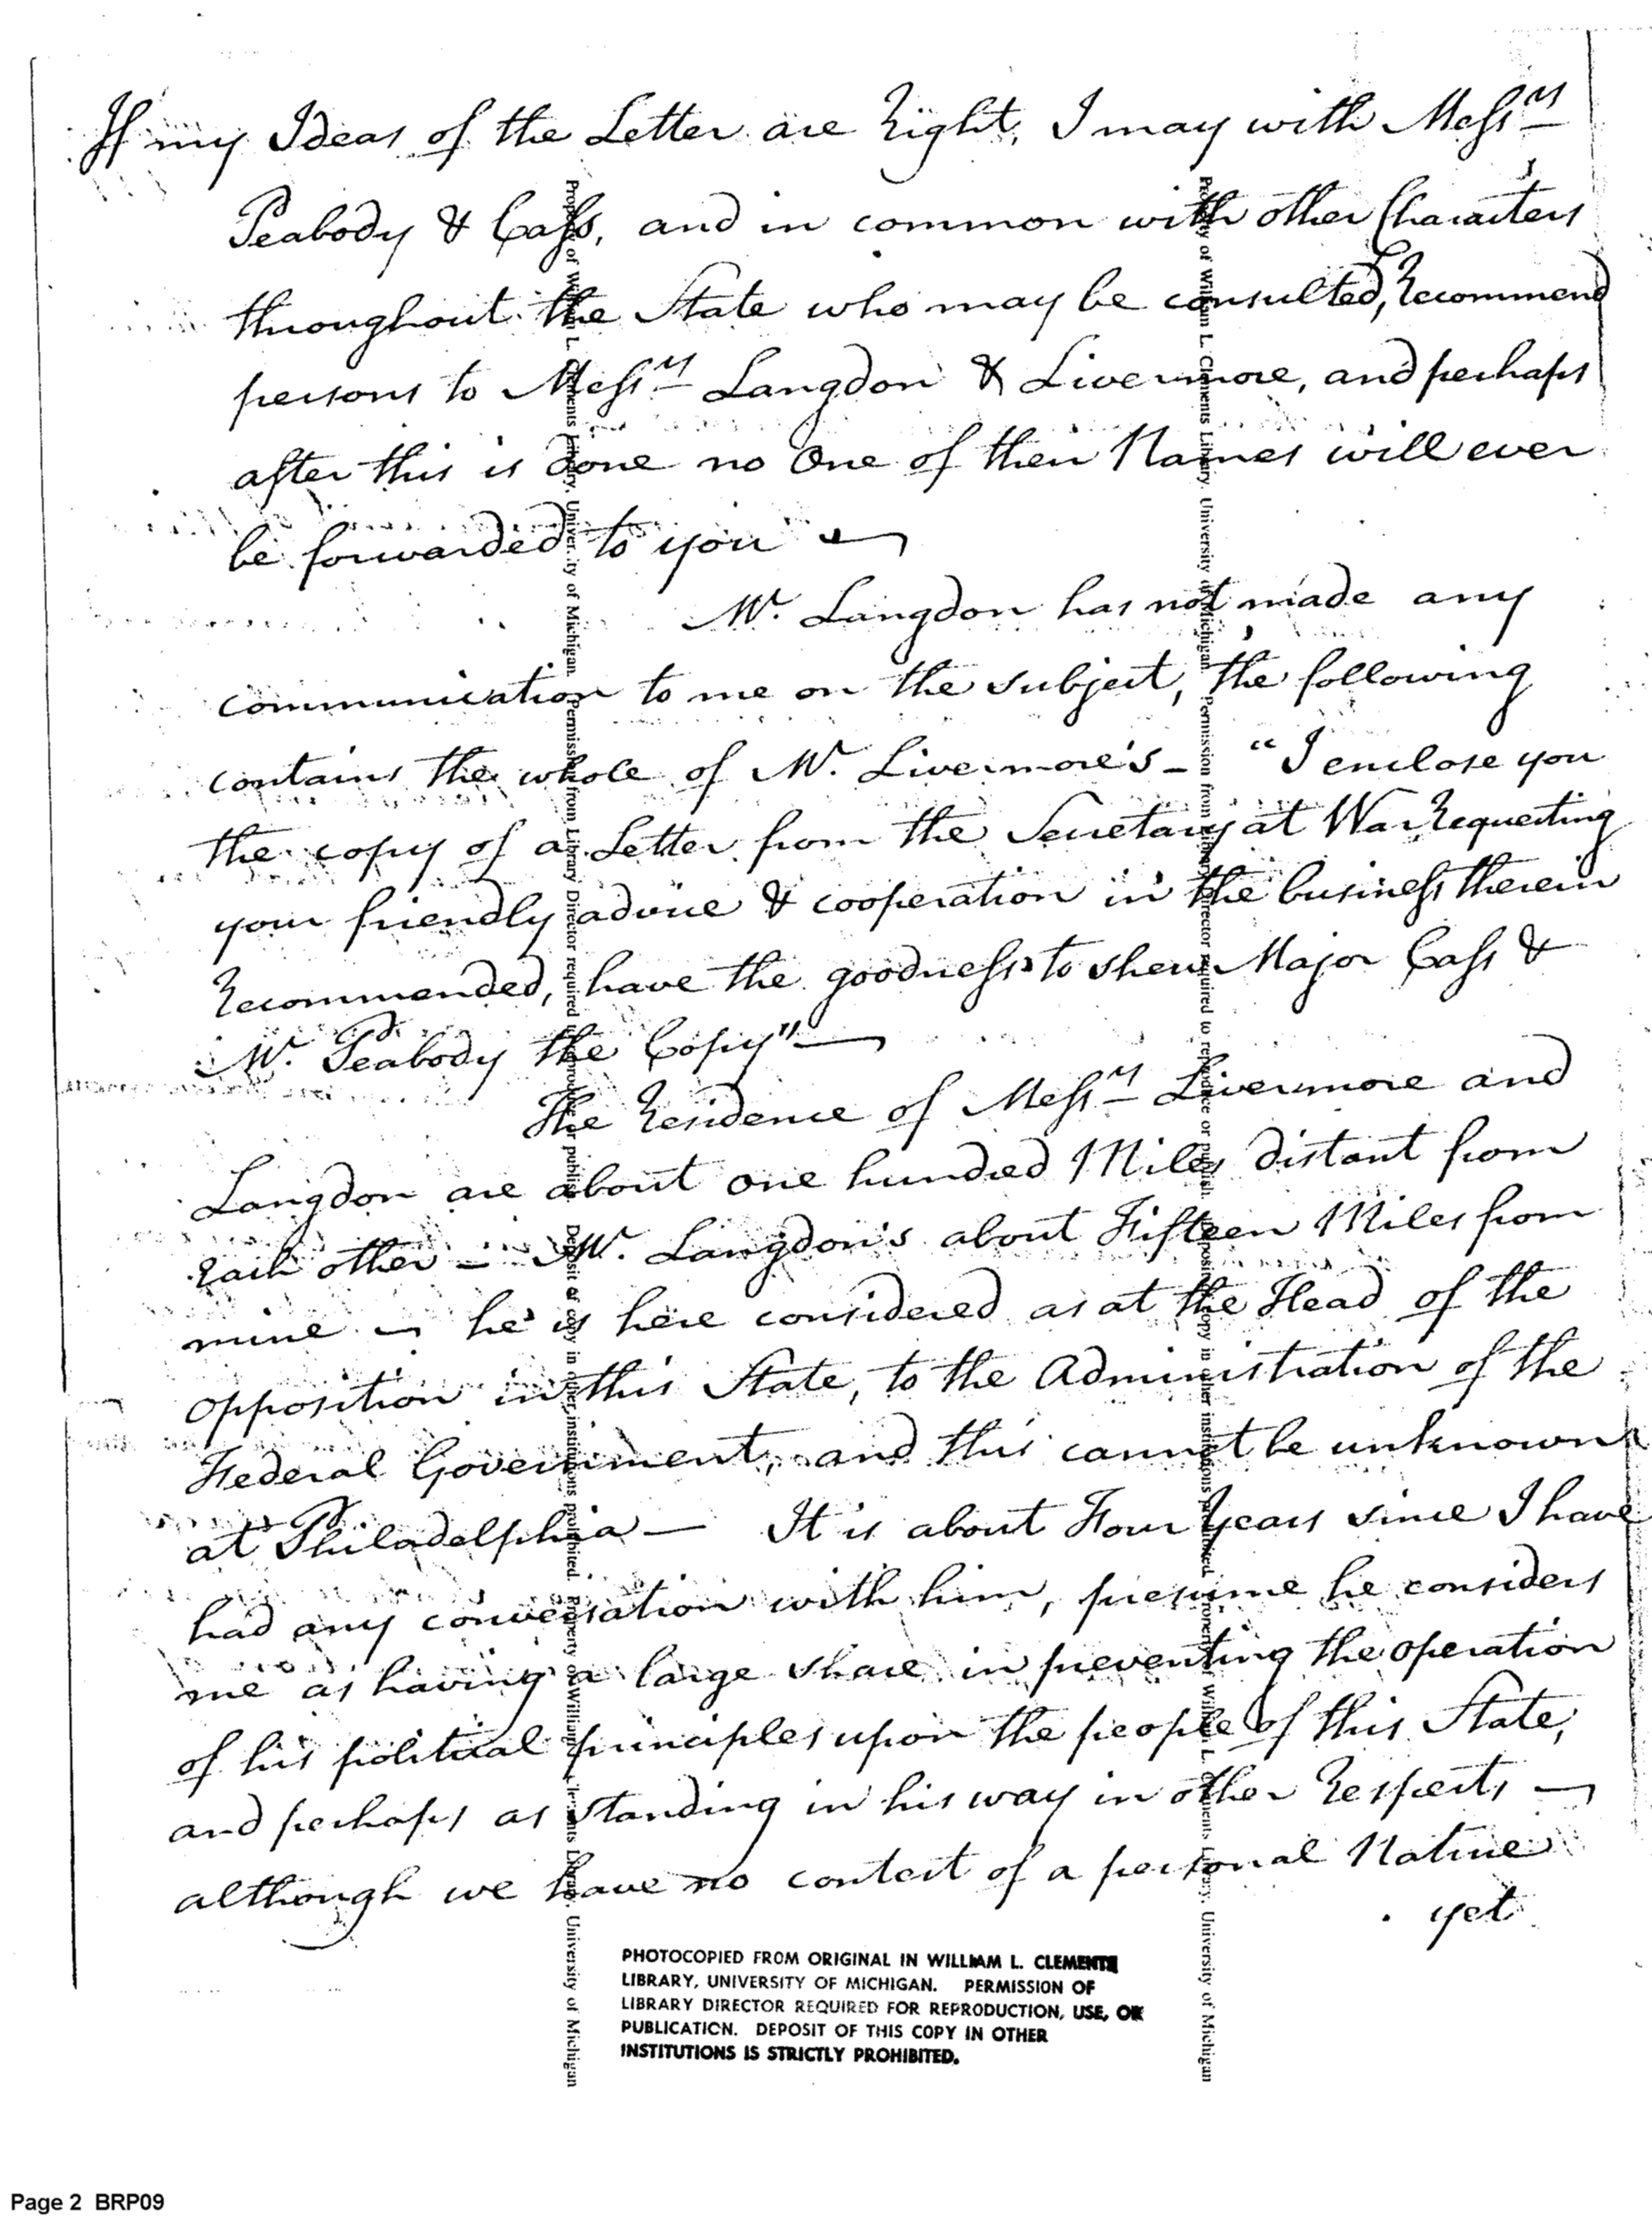 If my Ideas of the Letter are Right, I may with Messrs
Peabody & Cass, and in common with other Characters
throughout the State who may be consulted, Recommend
persons to Messrs Langdon & Livermore, and perhaps
after this is done no One of their Names will ever
be forwarded to you —
Mr. Langdon has not made any
communication to me on the subject, the following
contains the whole of Mr. Livermore's — "I enclose you
the copy of a Letter from the Secretary at War Requesting
your friendly advice & cooperation in the business therein
Recommended, have the goodness to shew Major Cass &
Mr. Peabody the Copy" —
The Residence of Messrs Livermore and
Langdon are about one hundred Miles distant from
Each other — Mr. Langdon's about Fifteen Miles from
mine — he is here considered as at the Head of the
opposition in this State, to the Administration of the
Federal Government, and this cannot be unknown
at Philadelphia — It is about Four Years since I have
had any conversation with him, presume he considers
me as having a large share in preventing the operation
of his political principles upon the people of this State,
and perhaps as standing in his way in other Respects —
although we have no contest of a personal Nature
yet
Property of William L. Clements Library, University of Michigan. Permission from Library Director required to reproduce or publish. Deposit of copy in other institutions prohibited. Property of William L. Clements Library, University of Michigan
Property of William L. Clements Library, University of Michigan. Permission from Library Director required to reproduce or publish. Deposit of copy in other institutions prohibited. Property of William L. Clements Library, University of Michigan
PHOTOCOPIED FROM ORIGINAL IN WILLIAM L. CLEMENTS
LIBRARY, UNIVERSITY OF MICHIGAN. PERMISSION OF
LIBRARY DIRECTOR REQUIRED FOR REPRODUCTION, USE, OR
PUBLICATION. DEPOSIT OF THIS COPY IN OTHER
INSTITUTIONS IS STRICTLY PROHIBITED.
Page 2 BRP09